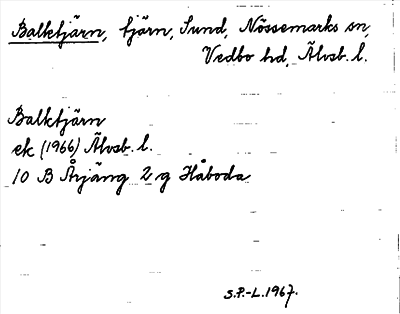 Balktjärn, tjärn, Sund, Nössemarks sn,
Vedbo hd, Älvsb. l.
Balktjärn
ek (1966) Älvsb. l.
10 B Årjäng 2 g Håboda
S.P.-L. 1967.